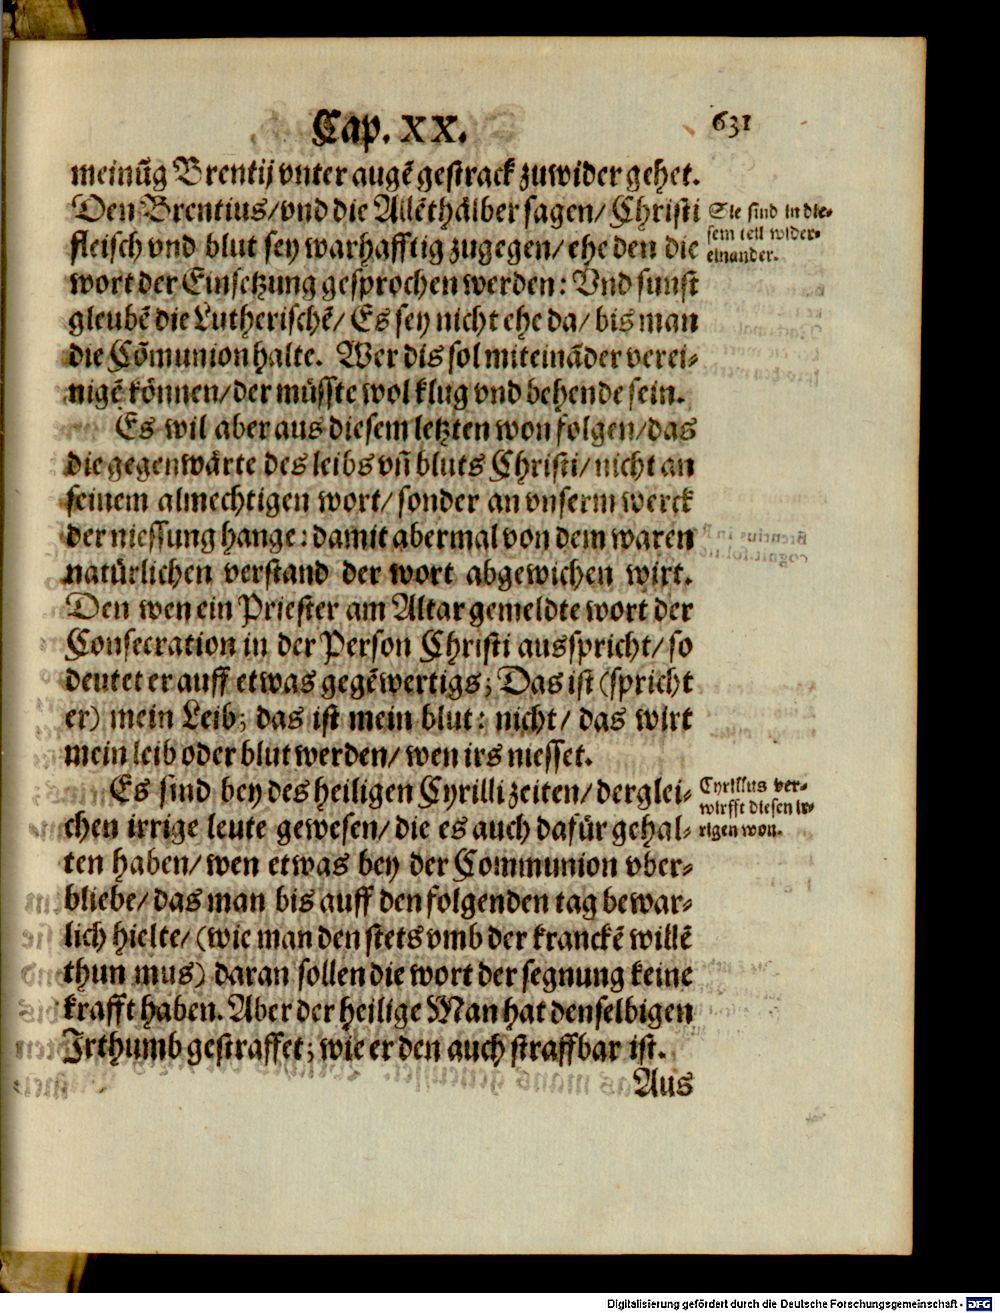 Cap. XX.
631
meinũg Brentij vnter augẽ gestrack zuwider gehet.
Den Brentius/ vnd die Allẽthälber sagen/ Christi
fleisch vnd blut sey warhafftig zugegen/ ehe den die
wort der Einsetzung gesprochen werden: Vnd sunst
gleubẽ die Lutherischẽ/ Es sey nicht ehe da/ bis man
die Cõmunion halte. Wer dis sol miteinãder verei-
nigẽ können/ der müsste wol klug vnd behende sein.
Sie sind in die-
sem teil wider-
einander.
Es wil aber aus diesem letzten won folgen/ das
die gegenwärte des leibs vñ bluts Christi/ nicht an
seinem almechtigen wort/ sonder an vnserm werck
der niessung hange: damit abermal von dem waren
natürlichen verstand der wort abgewichen wirt.
Den wen ein Priester am Altar gemeldte wort der
Consecration in der Person Christi ausspricht/ so
deutet er auff etwas gegẽwertigs; Das ist (spricht
er) mein Leib; das ist mein blut: nicht/ das wirt
mein leib oder blut werden/ wen irs niesset.
Es sind bey des heiligen Cyrilli zeiten/ derglei-
chen irrige leute gewesen/ die es auch dafür gehal-
ten haben/ wen etwas bey der Communion vber-
bliebe/ das man bis auff den folgenden tag bewar-
lich hielte/ (wie man den stets vmb der kranckẽ willẽ
thun mus) daran sollen die wort der segnung keine
krafft haben. Aber der heilige Man hat denselbigen
Irthumb gestraffet; wie er den auch straffbar ist.
Cyrillus ver-
wirfft diesen ir-
rigen won.
Aus
Digitalisierung gefördert durch die Deutsche Forschungsgemeinschaft - DFG